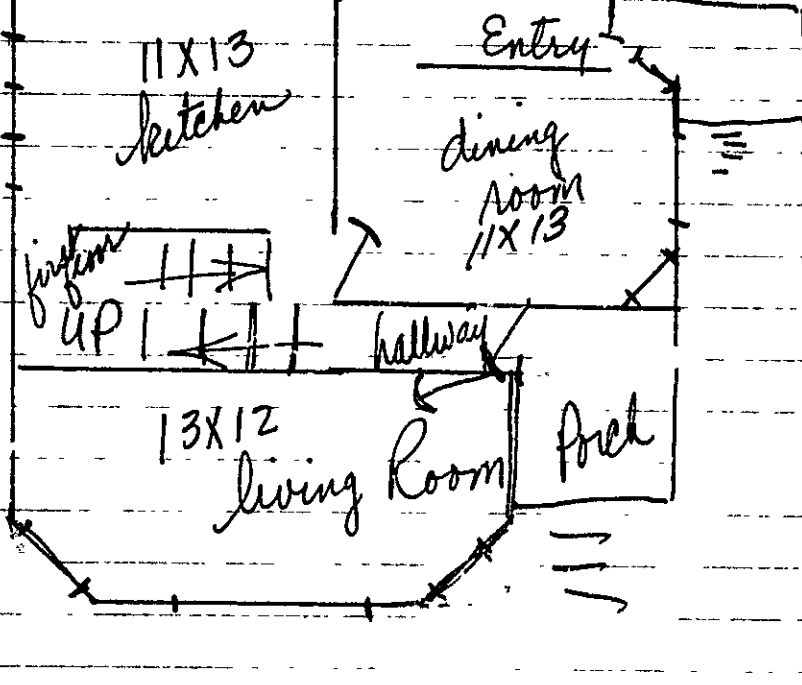 11 X 13
kitchen
Entry
dining
room
11 X 13
first
floor
UP
hallway
13 X 12
living Room
Porch